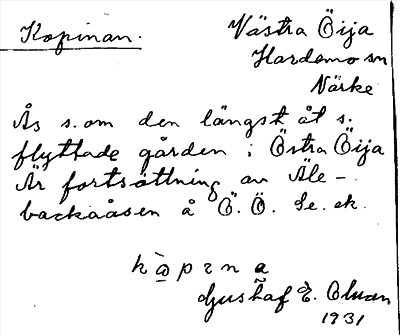 Kopinan.
Västra Öija
Hardemo sn
Närke
Ås s.om den längst åt s.
flyttade gården i Östra Öija
Är fortsättning av Äle-
backaåsen å Ö. Ö. Se. ek.
Gustaf E. Olsson
1931